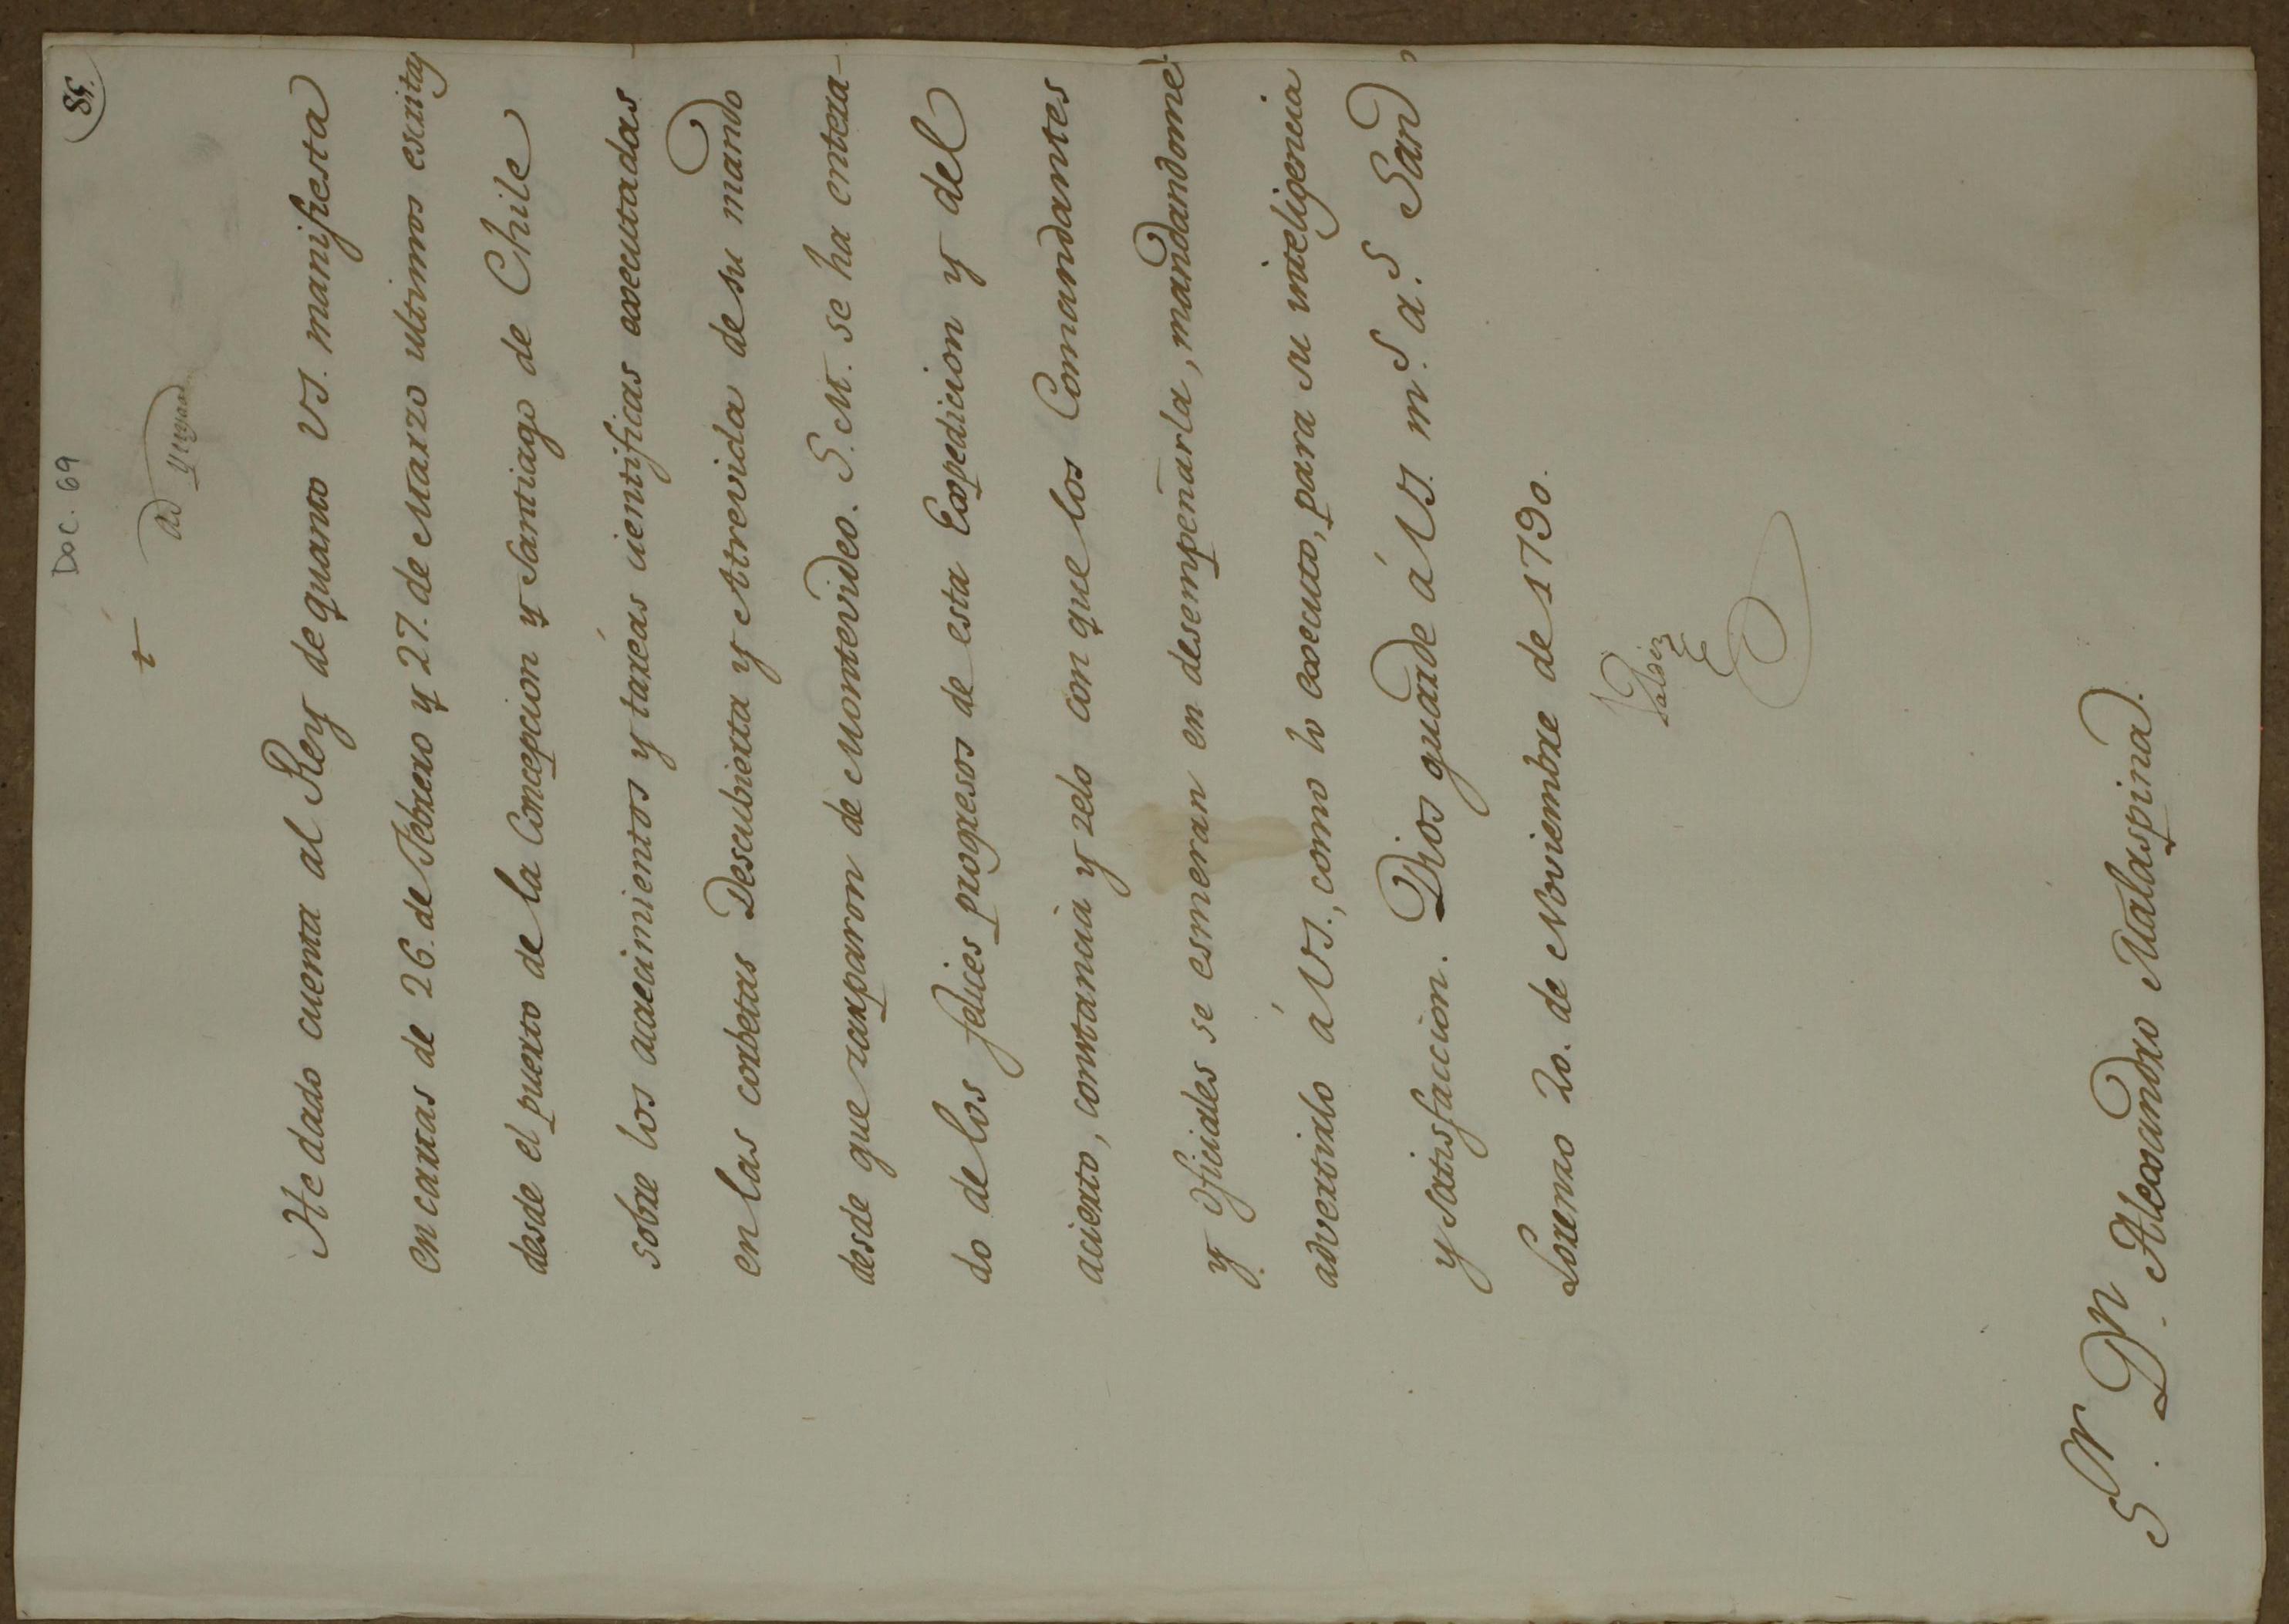 Doc. 69
84.
+
He dado cuenta al Rey de quanto VS. manifiesta
en cartas de 26. de Febrero y 27. de Marzo ultimos escritas
desde el puerto de la Concepcion y Santiago de Chile
sobre los acaecimientos y taréas cientificas executadas
en las corbetas Descubierta y Atrevida de su mando
desde que zarparon de Montevideo. S. M. se ha entera-
do de los felices progresos de esta Expedicion y del
acierto, constancia y zelo con que los Comandantes
y Oficiales se esmeran en desempeñarla, mandandome
advertirlo á VS., como lo executo, para su inteligencia
y satisfaccion. Dios guarde á VS. m.s a.s San
Lorenzo 20. de Noviembre de 1790.
Valdés
S.r D.n Alexandro Malaspina.